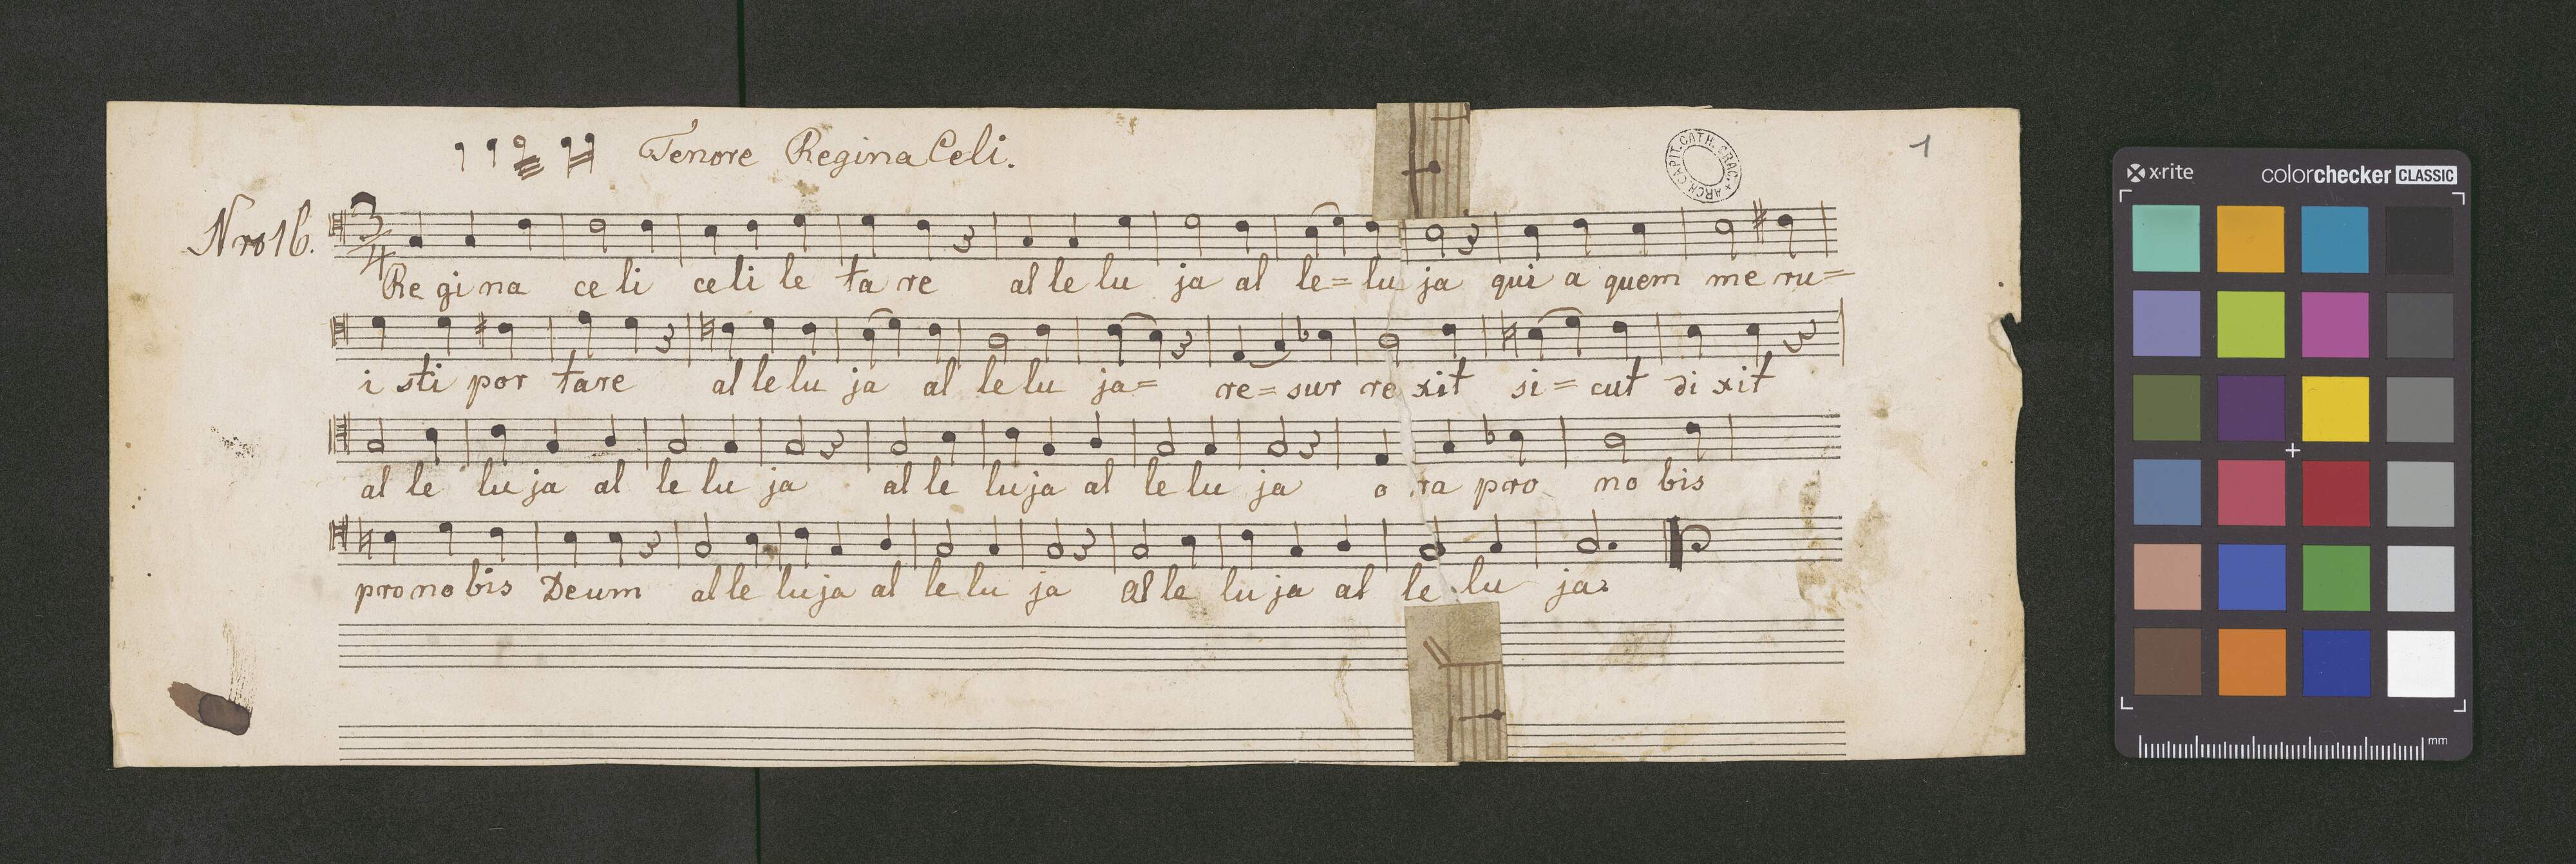 Tenore Regina Celi.
ARCH. CAPIT. CATH. CRAC.
1
Nro 16.
3/4
Re gi na ce li ce li le ta re al le lu ja al le= lu ja qui a quem me ru=
i sti por tare al le lu ja al le lu ja= re= sur re xit si= cut di xit
al le lu ja al le lu ja al le lu ja al le lu ja o ra pro no bis
pro no bis Deum al le lu ja al le lu ja al le lu ja al le lu ja.
x-rite colorchecker CLASSIC
mm